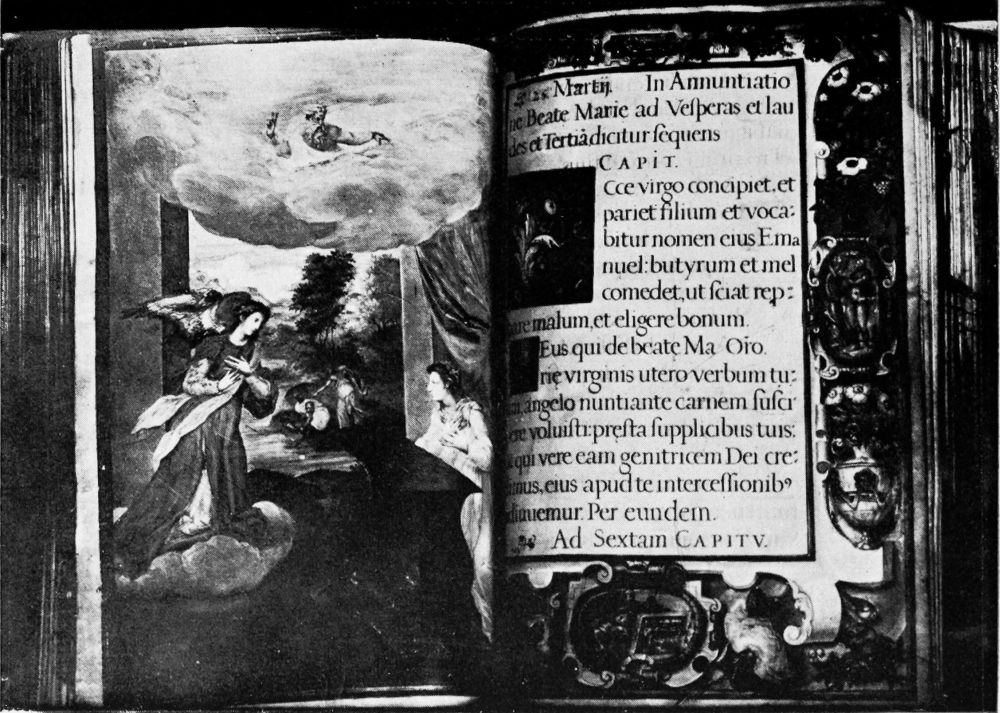 25 Martij. In Annuntiatio
ne Beatę Marię ad Veſperas et lau
des et Tertiã dicitur ſequens
CAPIT.
Cce virgo concipiet, et
pariet filium et voca:
bitur nomen eius Ema
nuel: butyrum et mel
comedet, ut ſciat rep:
malum, et eligere bonum.
Eus qui de beatę Ma Oŕo.
rię virginis utero verbum tu:
angelo nuntiante carnem ſuſci
voluiſti: pręſta ſupplicibus tuis:
qui vere eam genitricem Dei cre:
eius apud te interceſſionibꝰ
Per eundem.
Ad Sextam CAPITV.